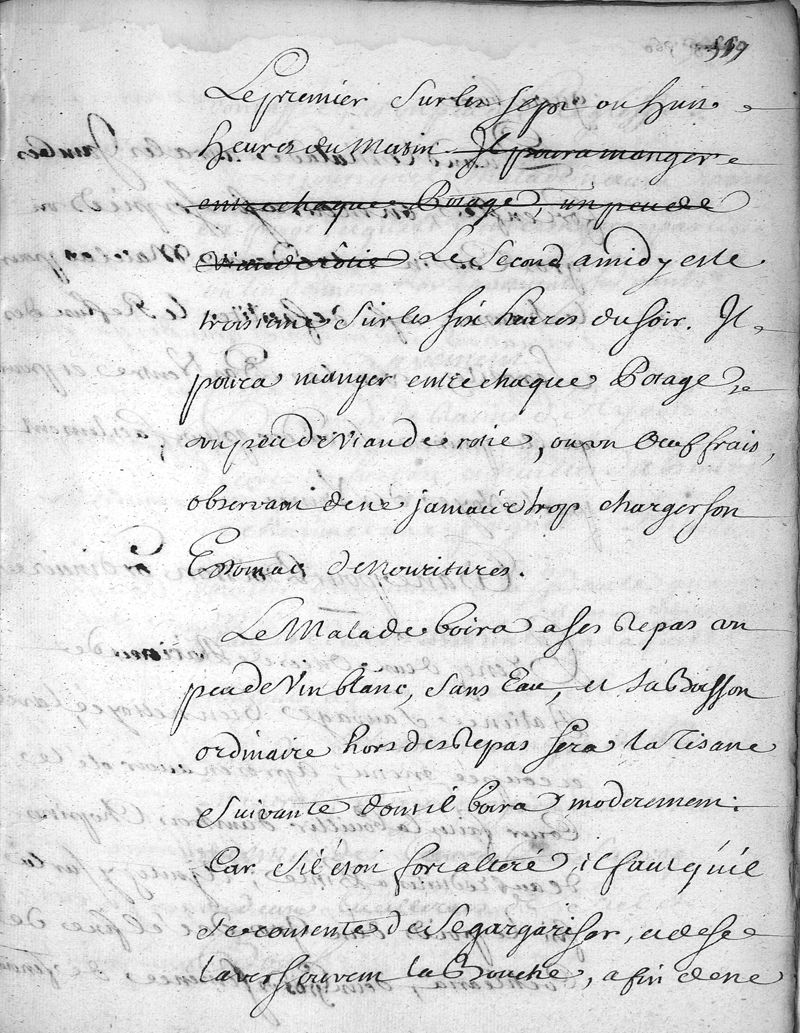 559
Le premier sur les sept ou huit
heures du Matin Il poura manger
entre chaque Potage, un peu de
viande rôtie Le Second a midy et le
troisieme sur les six heures du soir. Il
poura manger entre chaque Potage
un peu de Viande rotie, ou un Oeuf frais,
observant de ne jamais trop charger son
Estomac de Nouritures.
Le Malade boira a ses Repas un
peu de Vin blanc, sans Eau, et sa Boisson
ordinaire hors des Repas sera la Tisane
suivante dont il boira moderement:
Car s'il étoit fort alteré il faut qu'il
se contente de se gargariser, et de se
laver souvent la Bouche, afin de ne